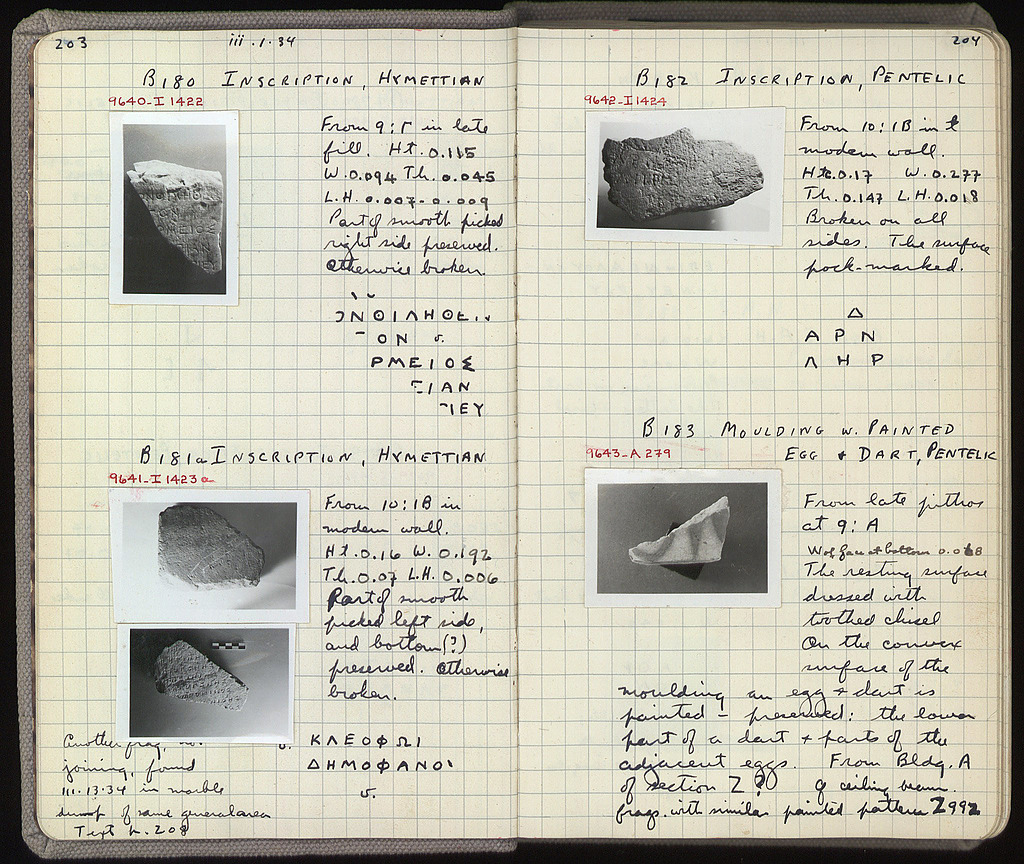 203
iii.1.34
B180 INSCRIPTION, HYMETTIAN
9640-I 1422
From 9:Γ in late
fill. Ht. 0.115
W. 0.094 Th. 0.045
L.H. 0.007-0.009
Part of smooth picked
right side preserved.
Otherwise broken.
ΝΘΙΛΗΘΕ..
ΟΝ v.
ΡΜΕΙΟΣ
ΙΑΝ
ΙΕΥ
B181a INSCRIPTION, HYMETTIAN
9641-I 1423 a
From 10:IB in
modern wall.
Ht. 0.16 W. 0.192
Th. 0.07 L.H. 0.006
Part of smooth
picked left side,
and bottom (?)
preserved. Otherwise
broken.
Another frag, not
joining, found
III.13.34 in marble
dump of same general area
Text p. 208
ΚΛΕΟΦΩΙ
ΔΗΜΟΦΑΝΟ
v.
204
B182 INSCRIPTION, PENTELIC
9642-I 1424
From 10:IB in
modern wall.
Ht. 0.17 W. 0.277
Th. 0.147 L.H. 0.018
Broken on all
sides. The surface
pock-marked.
Δ
Α Ρ Ν
Λ Η Ρ
B183 MOULDING W. PAINTED
EGG + DART, PENTELIC
9643-A 279
From late pithos
at 9:A
W of face at bottom
The resting surface
dressed with
toothed chisel
On the convex
surface of the
moulding an egg + dart is
painted - preserved: the lower
part of a dart + parts of the
adjacent eggs. From Bldg. A
of section Z? cf ceiling beam
frags. with similar painted pattern Z 992